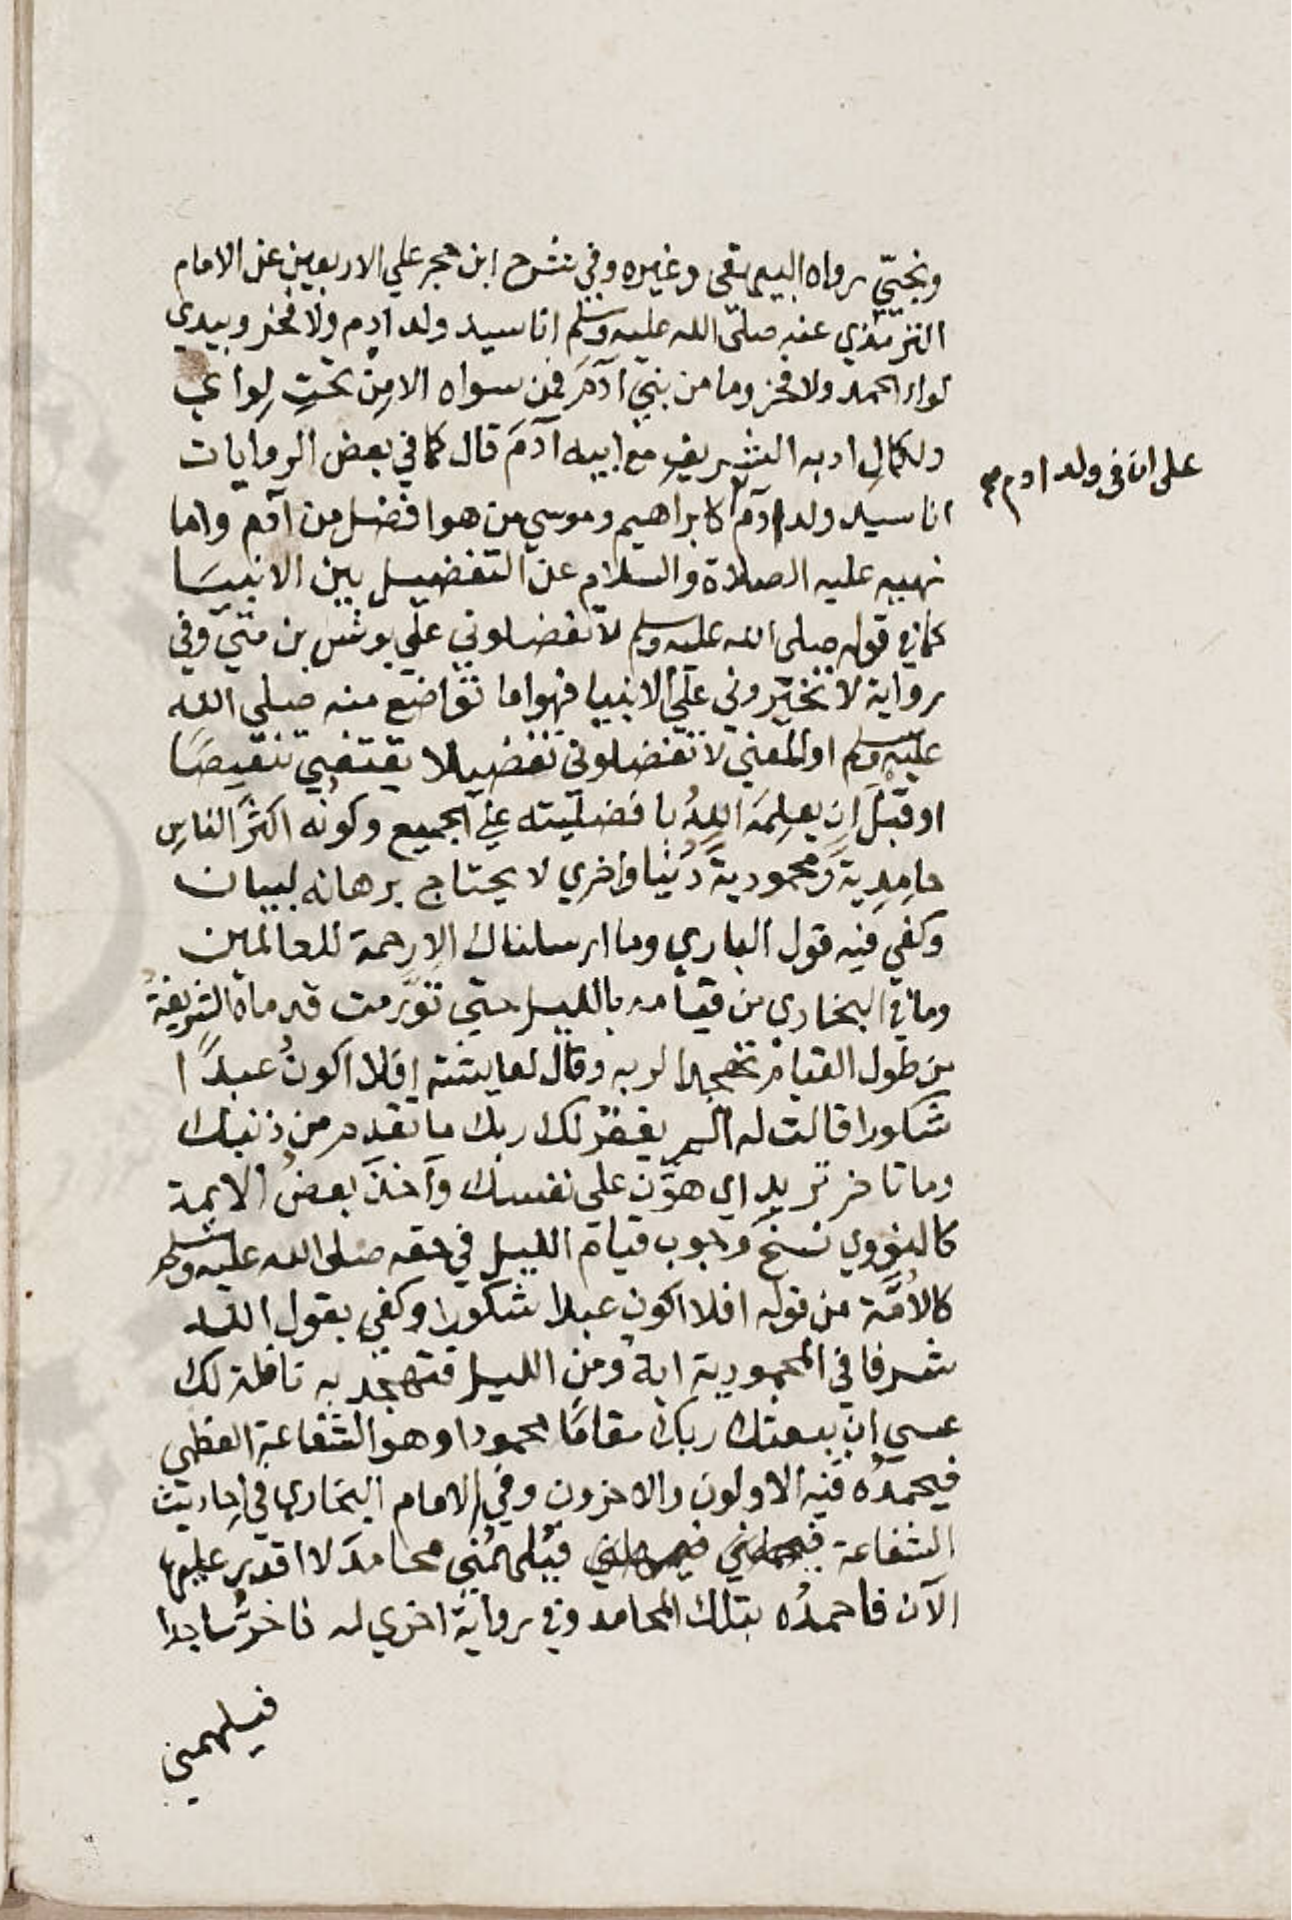 ونجيّي رواه البيهقي وغيره وفي شرح ابن حجر علي الاربعين عن الامام
الترمذي عنه صلى الله عليه وسلم انا سيد ولد ادم ولا فخر وبيدي
لواء الحمد ولا فخر وما من بني آدَمَ فمن سواه الا مِنْ تحتِ لِواي
ولكمالِ ادبه الشريفِ مع ابيه آدَمَ قال كما في بعض الروايات
انا سيد ولد ادم كابراهيم وموسي من هو افضل من آدم واما
على ان في ولد ادم
نهيه عليه الصلاة والسلام عن التفضيل بين الانبيَا
كما في قوله صلى الله عليه وسلم لا تفضلوني علي يونس بن متي وفي
رواية لا تخيّروني علي الانبيا فهو اما تواضع منه صلي الله
عليه وسلم او المعني لا تفضلوني تفضيلا يقتضي تنقيصًا
او قبْلَ ان يعلِمَهَ اللهُ بافضليته علي الجميع وكونُه اكثرَ الناسِ
حامِدِيةً ومحموديةً دُنيا واخري لا يحتاج برهانه لبيان
وكفي فيه قول الباري وما ارسلناك الا رحمة للعالمين
وما في البخاري من قيامه بالليل حتي تورّمت قدماه الشريفةُ
من طول القيام تهجدا لربه وقال لعايشة افلا اكونُ عبدًا
شكورا قالت له الم يغفرْ لك ربك ما تقدم من ذنبك
وما تاخر تريد اي هوّن على نفسك وآخذَ بعضُ الايمة
كالنووي نسخَ وجوب قيام الليل في حقه صلى الله عليه وسلم
كالأمَّة من قوله افلا اكون عبدا شكورا وكفي بقول الله
شرفا في المحمودية اية ومن الليل فتهجد به نافلة لك
عسي ان يبعثك ربك مقامًا محمودا وهو الشفاعة العظمي
فيحمدُه فيه الاولون والاخرون وفي الامام البخاري في احاديث
الشفاعة فيُلهمُني محامدَ لا اقدر عليها
الآن فاحمدُه بتلك المحامد وفي رواية اخري له فاخرُّ ساجدا
فيلهمني